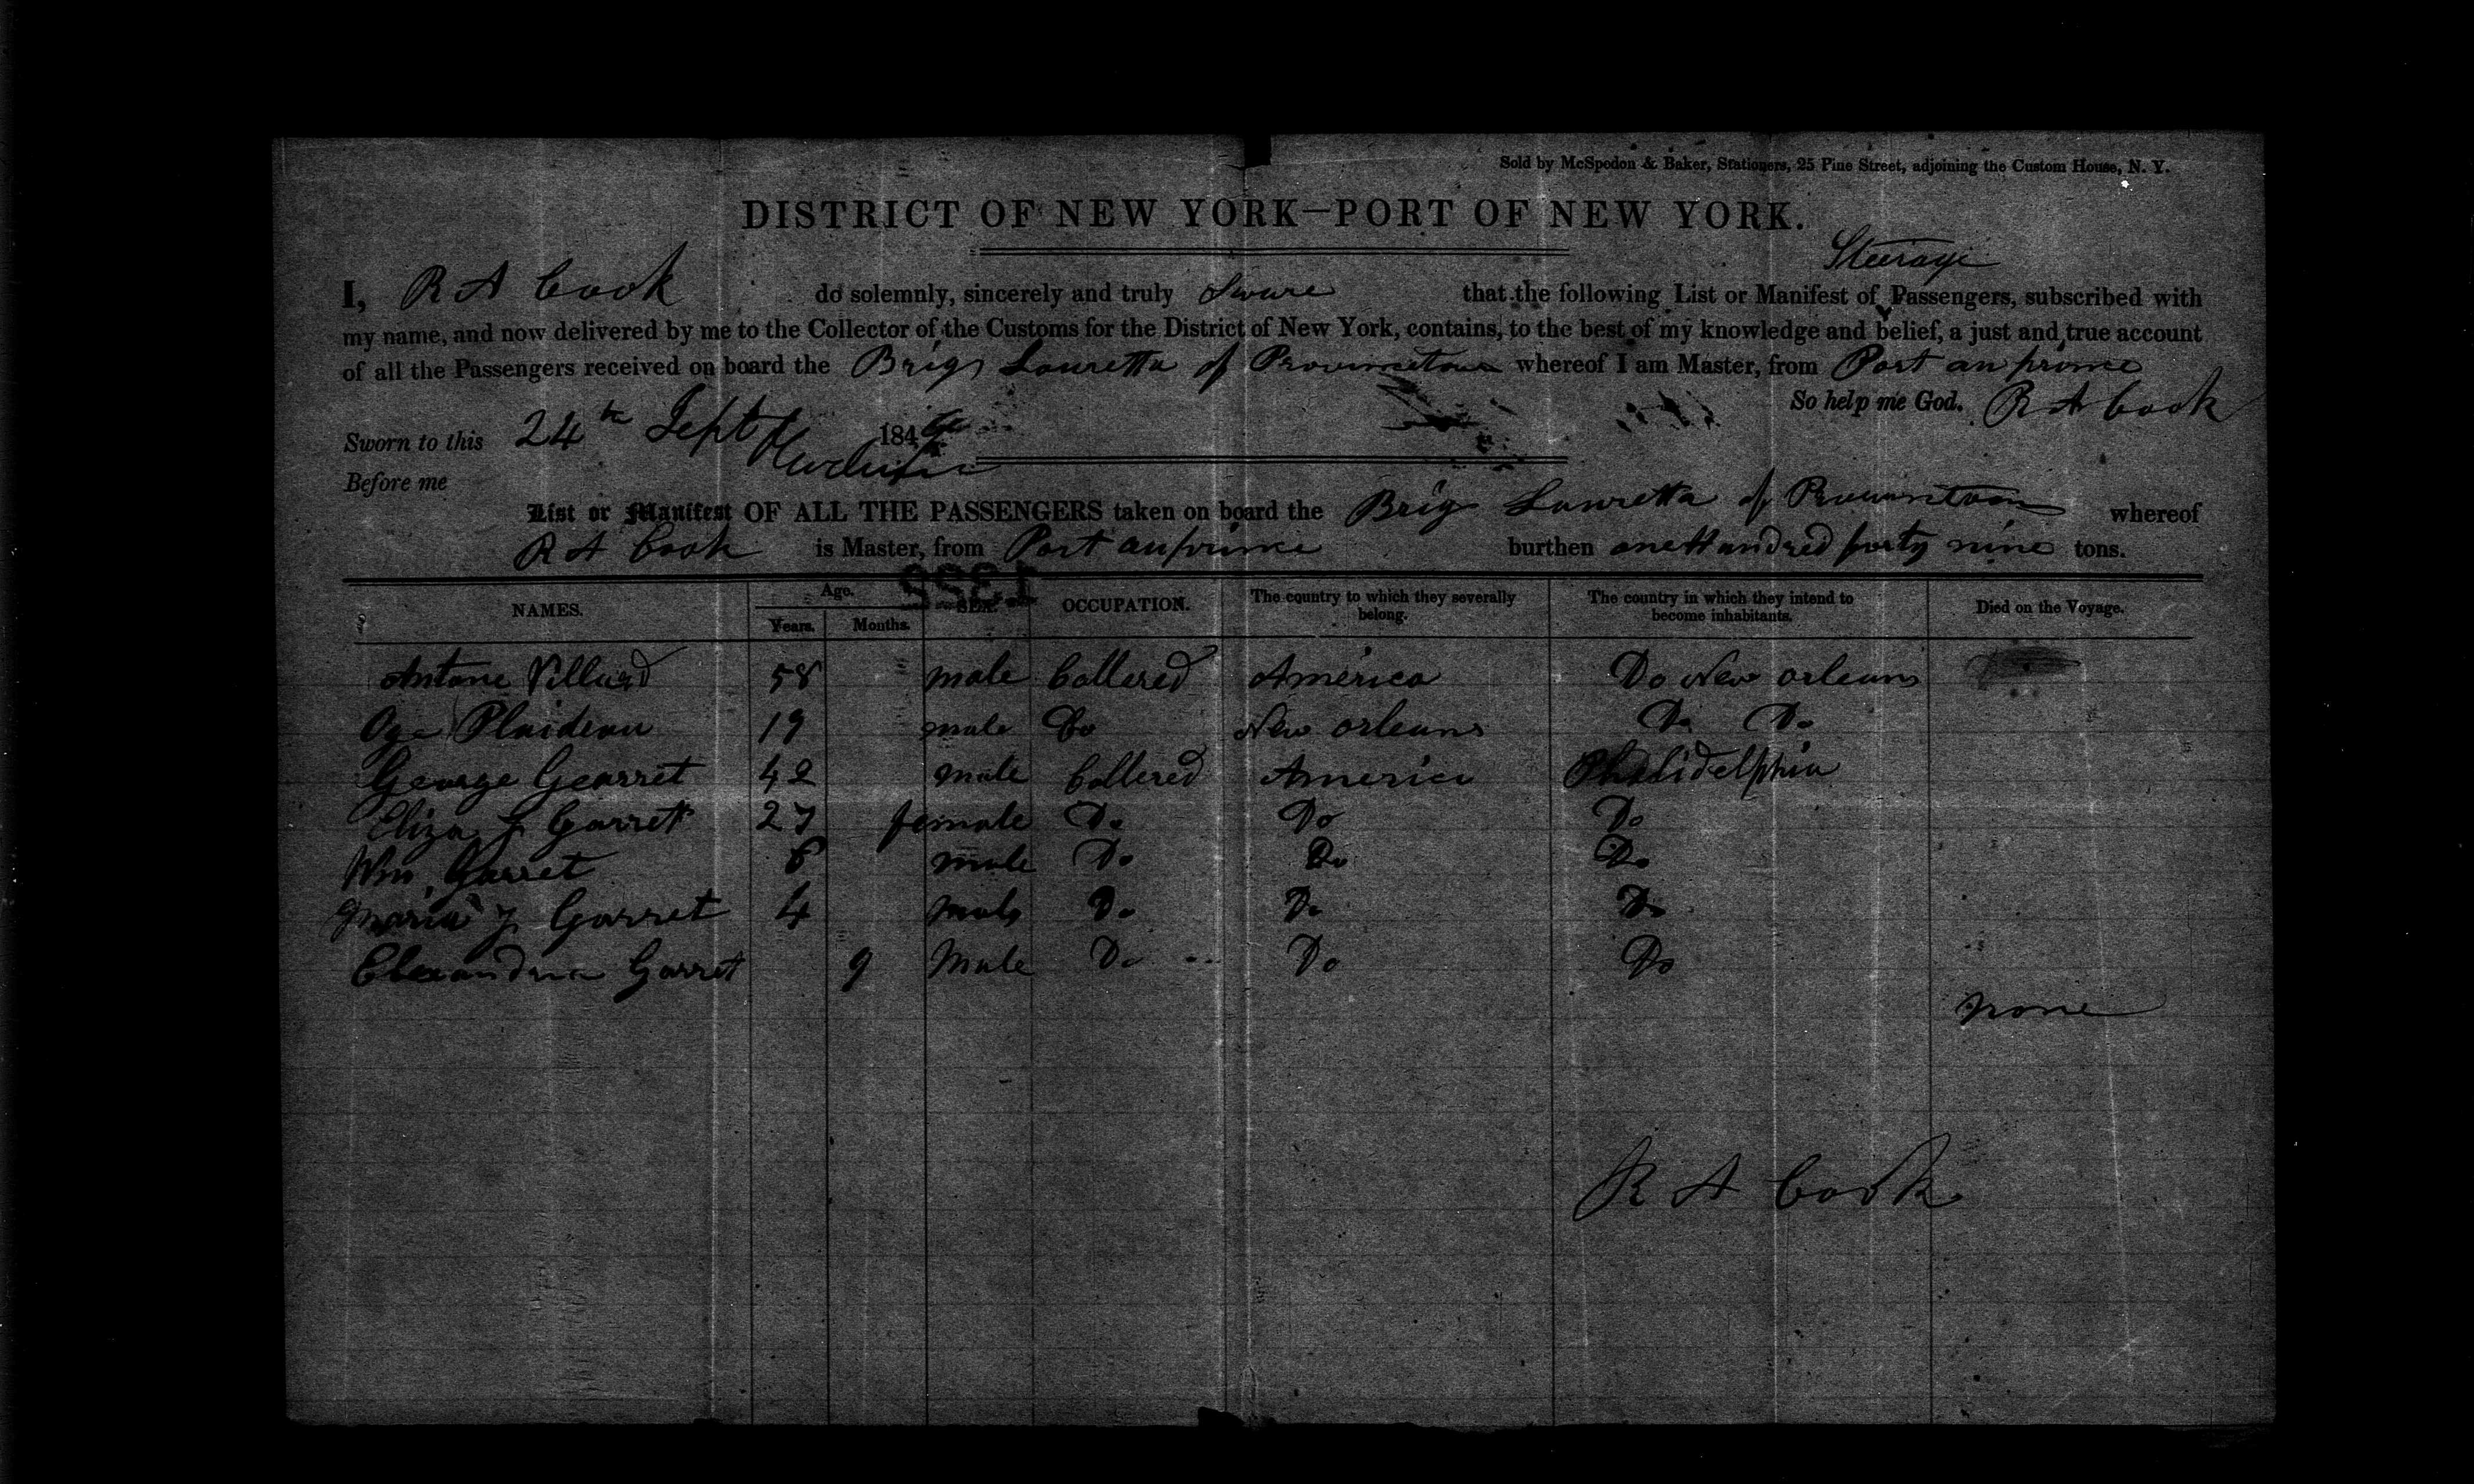 Sold by McSpedon & Baker, Stationers, 25 Pine Street, adjoining the Custom House, N. Y.
DISTRICT OF NEW YORK—PORT OF NEW YORK.
Steerage
I, R A Cook do solemnly, sincerely and truly Sware that the following List or Manifest of Passengers, subscribed with
my name, and now delivered by me to the Collector of the Customs for the District of New York, contains, to the best of my knowledge and belief, a just and true account
of all the Passengers received on board the Brig Lauretta of Provincetown whereof I am Master, from Port au prince
So help me God. R A Cook
Sworn to this 24th Sept 1849
Before me
List or Manifest OF ALL THE PASSENGERS taken on board the Brig Lauretta of Provincetown whereof
R A Cook is Master, from Port au prince burthen one Hundred forty nine tons.
NAMES. Age. Years. Months. SEX. OCCUPATION. The country to which they severally belong. The country in which they intend to become inhabitants. Died on the Voyage.
Antone Villard 58 male Collered America Do New orleans
Plaideau 19 male Do New orleans Do Do
George Gearret 42 male Collered America Philidelphia
Eliza J Garret 27 female Do Do Do
Wm Garret 6 male Do Do Do
Maria J Garret 4 male Do Do Do
Elexandria Garret 9 Male Do Do Do
none
R A Cook